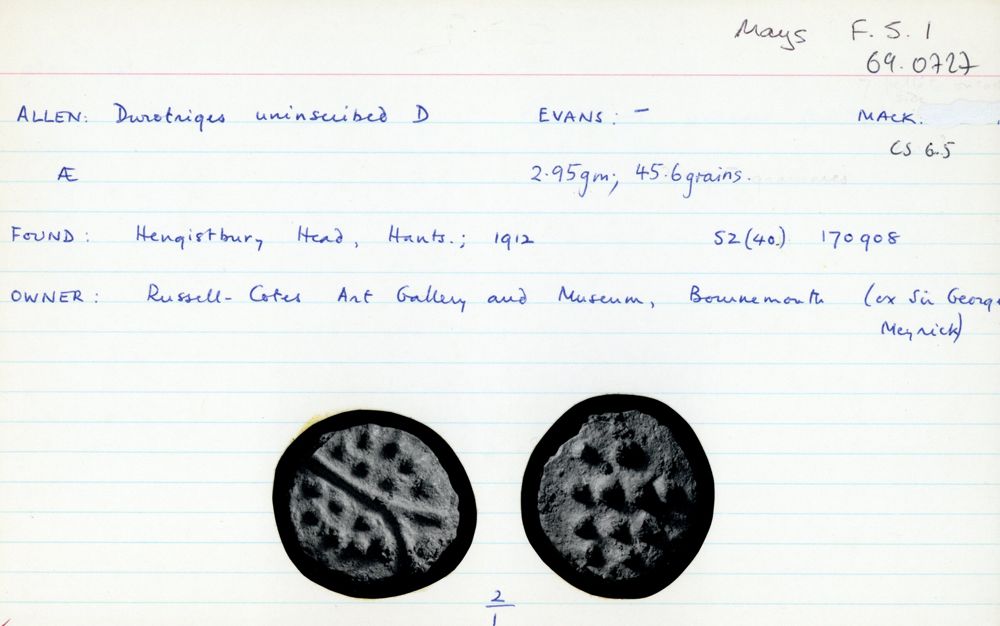 Mays F. S. 1
69.0727
ALLEN: Durotriges uninscribed D EVANS: - MACK.
CS 6.5
Æ 2.95gm; 45.6grains.
FOUND: Hengistbury Head, Hants.; 1912 SZ (40.) 170908
OWNER: Russell-Cotes Art Gallery and Museum, Bournemouth (ex Sir George
Meyrick)
2
1